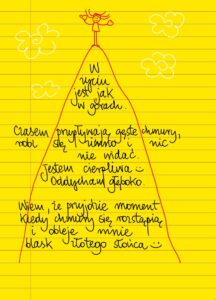 W
życiu
jest jak
w górach.
Czasem przypływają gęste chmury,
robi się zimno i nic
nie widać.
Jestem cierpliwa
Oddycham głęboko.
Wiem, że przyjdzie moment
kiedy chmury się rozstąpią
i obleje mnie
blask złotego słońca